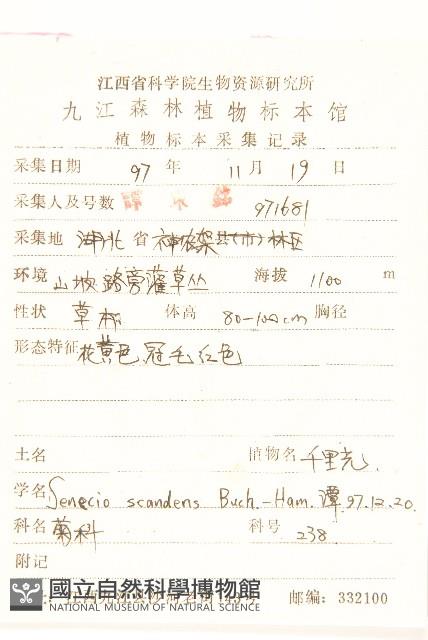 江西省科学院生物资源研究所
九江森林植物标本馆
植物标本采集记录
采集日期 97 年 11 月 19 日
采集人及号数 谭 策 铭 971681
采集地 湖北 省 神农架县(市) 林区
环境 山坡路旁灌草丛 海拔 1100 m
性状 草本 体高 80-100cm 胸径
形态特征 花黄色、冠毛红色
土名 植物名 千里光
学名 Senecio scandens Buch.-Ham. 谭 97.12.20.
科名 菊科 科号 238
附记
國立自然科學博物館
NATIONAL MUSEUM OF NATURAL SCIENCE
邮编：332100